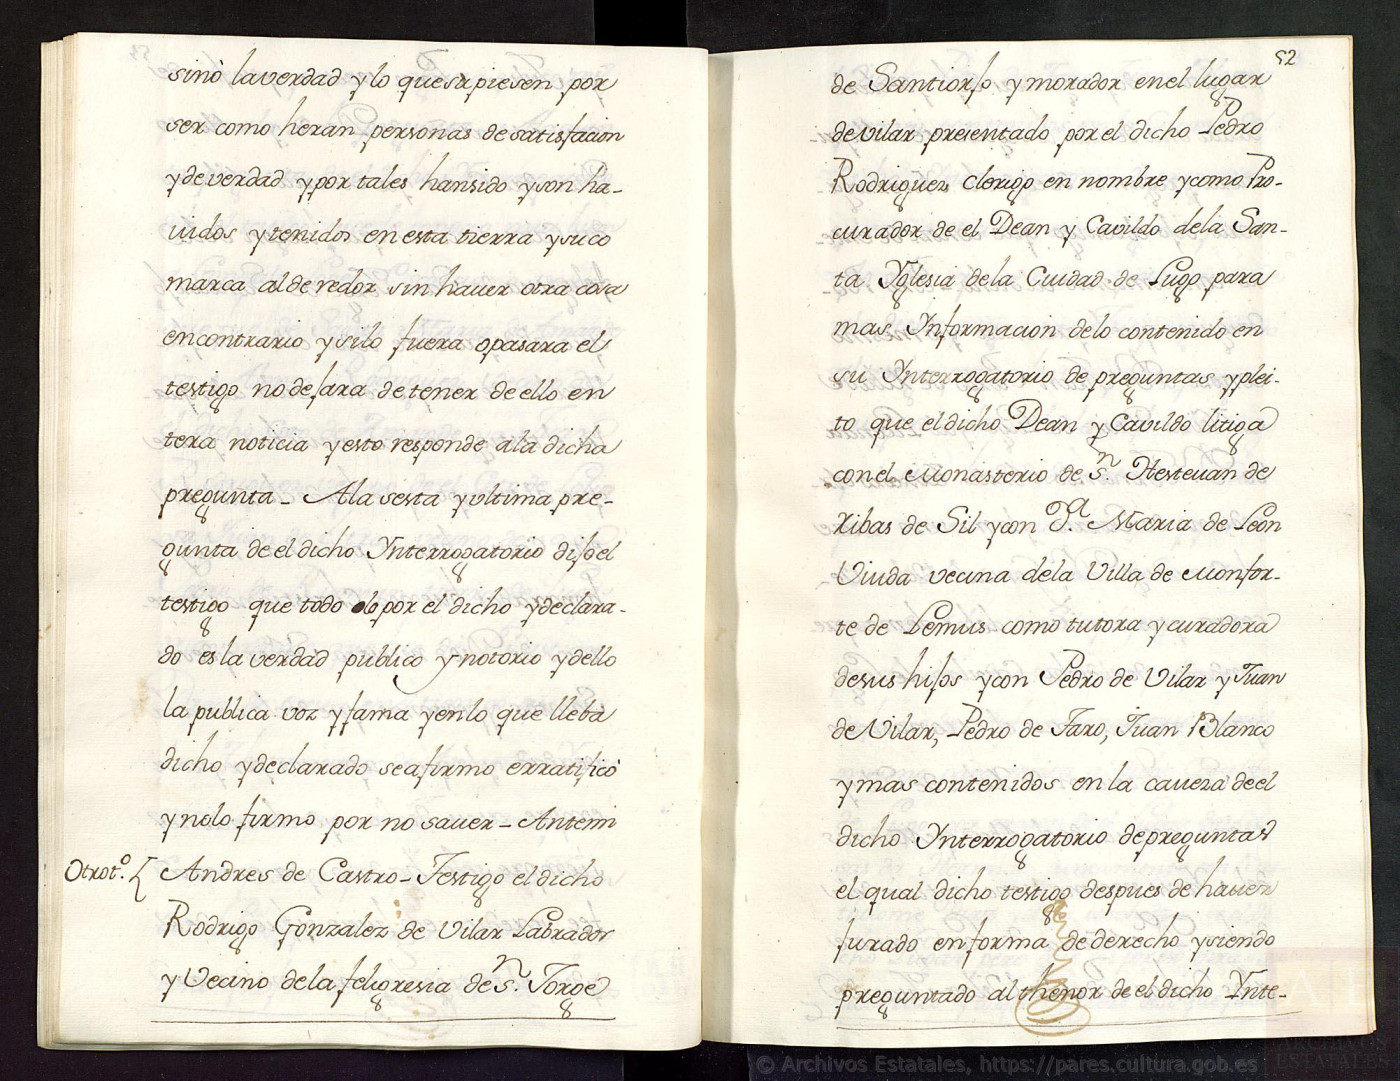 sinò laverdad y lo que supiesen por
ser como heran personas de satisfacion
y de verdad y por tales han sido y son ha-
uidos y tenidos en esta tierra y su co
marca al de redor sin hauer otra cosa
en contrario y si lo fuera o pasara el
testigo no dejara de tener de ello en
tera noticia y esto responde a la dicha
pregunta - A la sesta y ultima pre-
gunta de el dicho Interrogatorio dijo el
testigo que todo lo por el dicho y declara-
do es la verdad publico y notorio y dello
la publica voz y fama y en lo que lleba
dicho y declarado se afirmo e rratificò
y no lo firmo por no sauer - Antemi
Otro tº. Andres de Castro - Testigo el dicho
Rodrigo Gonzalez de Vilar Labrador
y Vecino de la feligresia de Sn. Jorge
52
de Santiorjo y morador en el lugar
de vilar presentado por el dicho Pedro
Rodriguez clerigo en nombre y como Pro-
curador de el Dean y Cavildo de la San-
ta Yglesia de la Cuidad de Lugo para
mas Informacion de lo contenido en
su Interrogatorio de preguntas y plei-
to que el dicho Dean y Cavildo litiga
con el Monasterio de Sn. Hesteuan de
Ribas de Sil y con Da. Maria de Leon
Viuda vecina de la Villa de Monfor-
te de Lemus como tutora y curadora
de sus hijos y con Pedro de Vilar y Juan
de Vilar, Pedro de Faro, Juan Blanco
y mas contenidos en la caueza de el
dicho Interrogatorio de preguntas
el qual dicho testigo despues de hauer
jurado en forma de derecho y siendo
preguntado al thenor de el dicho Inte-
© Archivos Estatales, https://pares.cultura.gob.es
ARCHIVOS
ESTATALES